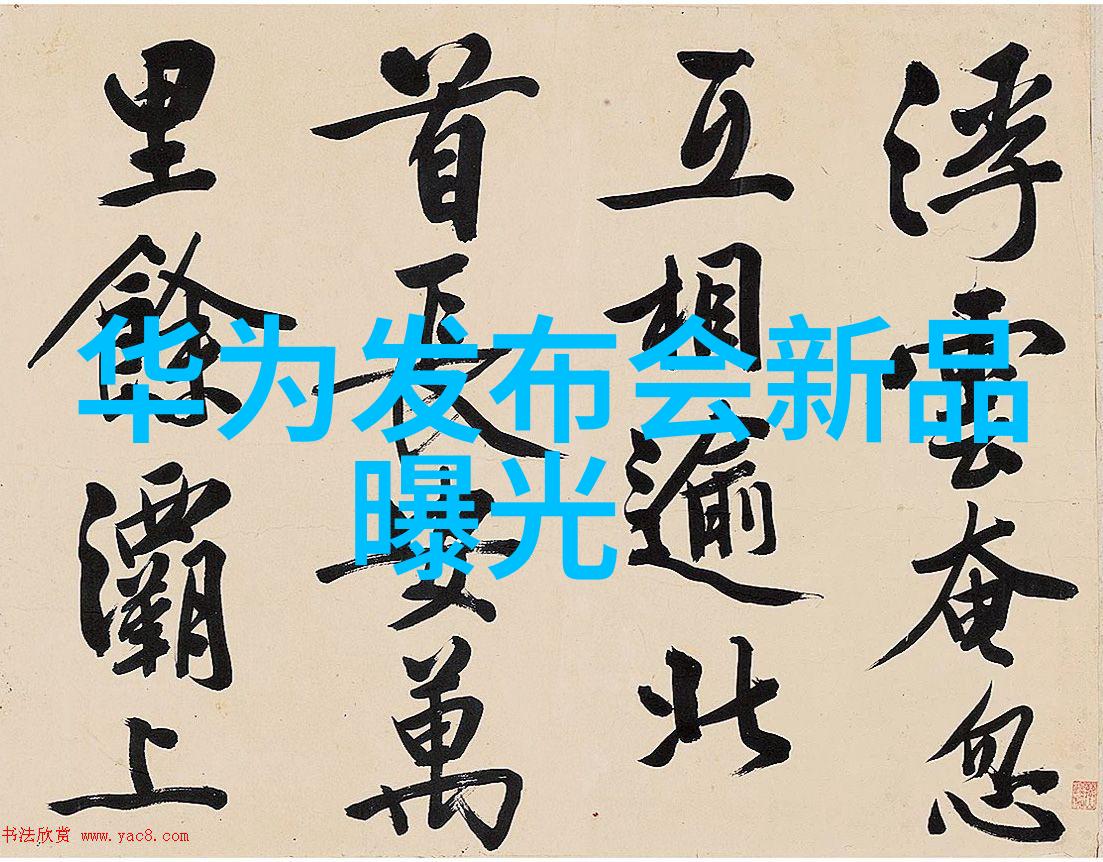 华为发布会新品
曝光
浮雲奄忽
互相逾北
首長安萬
里餘灞上
书法欣赏 www.yac8.com